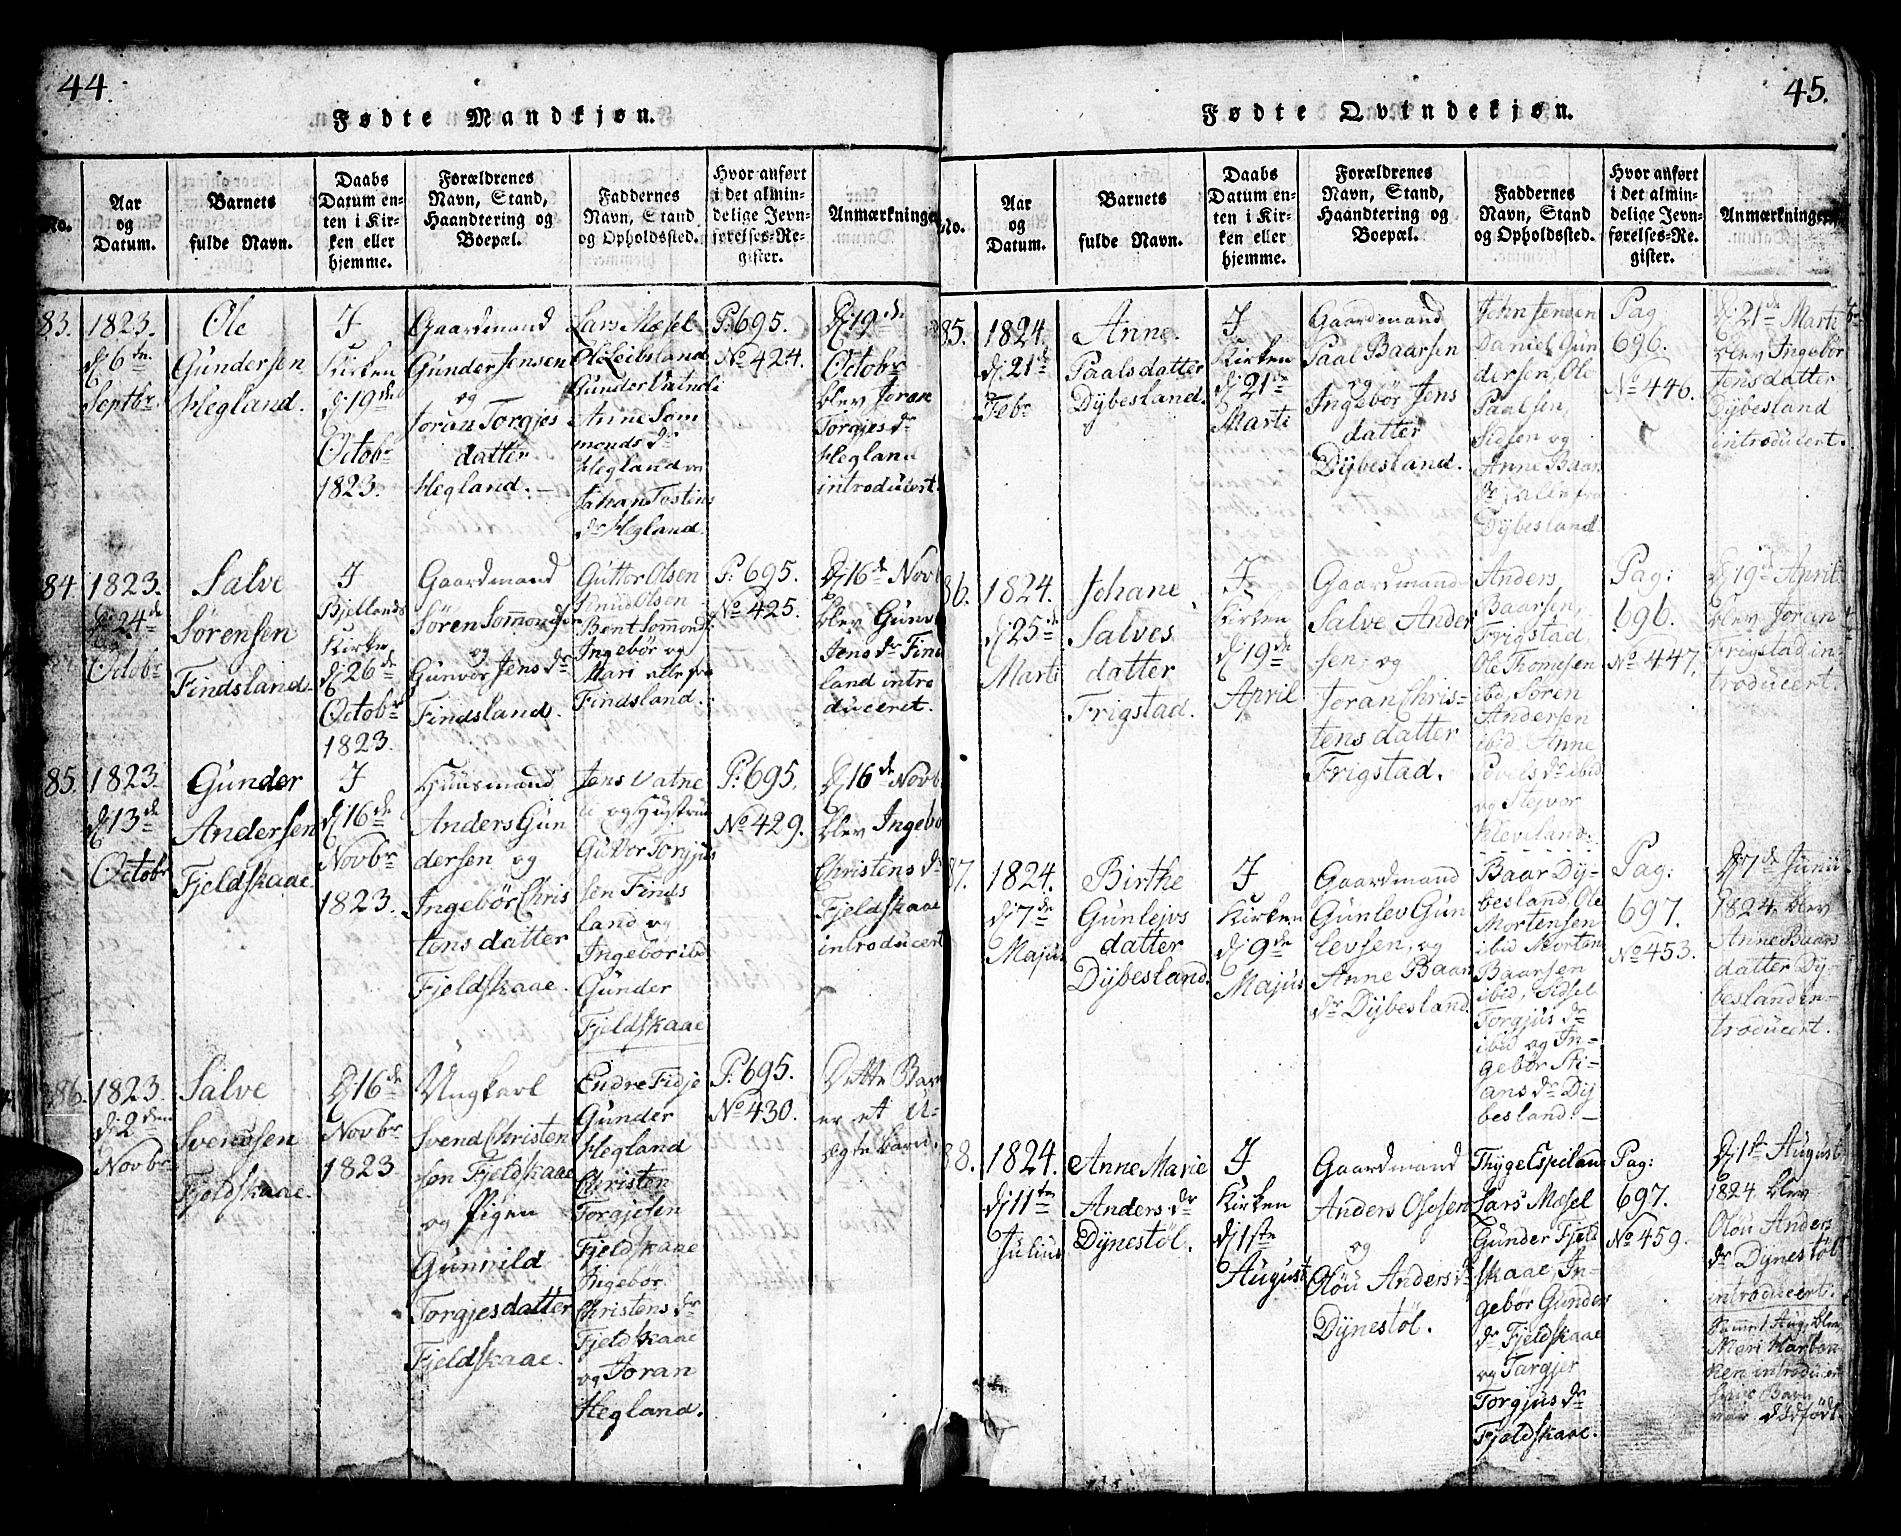 44.
Fødte Mandkjøn.
No.
Aar
og
Datum.
Barnets
fulde Navn.
Daabs
Datum en-
ten i Kir-
ken eller
hjemme.
Forældrenes
Navn, Stand,
Haandtering og
Boepæl.
Faddernes
Navn, Stand
og Opholdssted.
Hvor anført
i det almin-
delige Jevn-
førelses-Re-
gister.
Anmærkninger
83.
1823.
d 6de
Septbr
Ole
Gundersen
Hegland.
I
Kirken
d 19de
Octobr
1823.
Gaardmand
Gunder Jensen
og
Joran Torgjes
datter
Hegland.
Lars Mosel
Ole Leibsland
Gunder Vatneli
Anne Som
monds dr
Hegland
Johan Tostins
dr Hegland.
P: 695.
No 424.
D 19de
Octobr
blev Joran
Torgjes dr
Hegland
introducert.
84.
1823.
d 24de
Octobr
Salve
Sørensen
Findsland
I
Bjellands
Kirke
d 26de
Octobr
1823.
Gaardmand
Sören Sommonds
og
Gunvör Jens dr
Findsland.
Guttor Olsen
Knud Olsen
Bent Sommonds
Ingebör og
Mari alle fra
Findsland.
P: 695.
No 425.
D 16de Novb
blev Gunvö
Jens dr Find
land intro
duceret.
85.
1823.
d 13de
Octobr
Gunder
Andersen
Fjeldskaae.
I
d 16de
Novbr
1823.
Huusmand
Anders Gun
dersen og
Ingebör Chris
tens datter
Fjeldskaae.
Jens Vatne
li og Hustrue
Guttor Torgjus
sen Finds
land og
Ingebör ibd
Gunder
Fjeldskaae
P: 695.
No 429.
D 16de Novb
blev Ingebö
Christens dr
Fjeldskaae
introducert
86.
1823.
d 2den
Novbr
Salve
Svendsen
Fjeldskaae.
D 16de
Novbr
1823
Ungkarl
Svend Christen
sen Fjeldskaae
og Pigen
Gunnild
Torgjesdatter
Fjeldskaae.
Endre Fidje
Gunder
Hegland
Christen
Torgjesen
Fjeldskaae
Ingebör
Christens dr
Fjeldskaae
og Joran
Hegland.
P: 695.
No 430.
Dette Barn
er et U-
ægte barn.
45.
Fødte Qvindekjøn.
No.
Aar
og
Datum.
Barnets
fulde Navn.
Daabs
Datum en-
ten i Kir-
ken eller
hjemme.
Forældrenes
Navn, Stand,
Haandtering og
Boepæl.
Faddernes
Navn, Stand
og Opholdssted.
Hvor anført
i det almin-
delige Jevn-
førelses-Re-
gister.
Anmærkninger
85.
1824.
d 21de
Febr
Anne
Paalsdatter
Dÿbesland.
I
Kirken
d 21de
Marti
Gaardmand
Paal Baarsen
og
Ingebör Jens
datter
Dÿbesland.
John Jensen
Daniel Gun
dersen, Ole
Paalsen,
Sidsen og
Anne Baars
dr alle fra
Dÿbesland
Pag
696.
No 446.
D 21de Marti
blev Ingebör
Jensdatter
Dÿbesland
introducert.
86.
1824.
d 25de
Marti
Johane
Salves
datter
Frigstad.
I
Kirken
d 19de
April
Gaardmand
Salve Ander
sen, og
Joran Chris-
tens datter
Frigstad.
Anders
Baarsen,
Frigstad,
Ole Thomesen
ibid, Sören
Andersen
ibid, Anne
Povels dr ibid
og Stejvor
Kleveland.
Pag:
696.
No 447.
D 19de April
blev Joran
Frigstad in-
troducert.
87.
1824.
d 7de
Majus
Birthe
Gunlejvs
datter
Dÿbesland.
I
Kirken
d 9de
Majus
Gaardmand
Gunlev Gun
levsen, og
Anne Baars
dr Dÿbesland
Baar Dÿ-
besland, Ole
Mortensen
ibid Morten
Baarsen
ibid, Sidsel
Torgjus dr
ibid og In-
gebör Sti-
ans dr Dÿ
besland.
Pag:
697.
No 453.
D 7de Junii
1824 blev
Anne Baars
datter Dÿ-
besland in-
troducert.
88.
1824.
d 11te
Julius
Anne Marie
Anders dr
Dÿnestöl.
I
Kirken
d 1ste
August
Gaardmand
Anders Olsen
og
Olöu Anders dr
Dÿnestöl.
Thygel Espeland
Lars Mosel
Gunder Fjeld
skaae, In-
gebör Gunders
dr Fjeldskaae
og Targjer
Torgjus dr
Fjeldskaae.
Pag:
697.
No 459.
D 1st August
1824 blev
Olöu Anders
dr Dÿnestöl
introducert.
Samme 1 Aug. blev
Mari Harbon
Barn
var dödfödt.